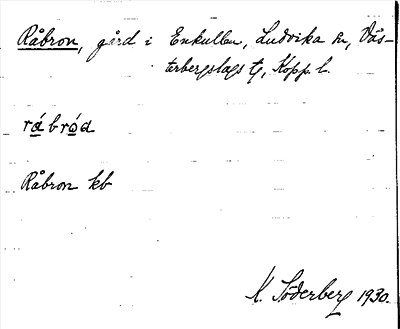 Råbron, gård i Enkullen, Ludvika sn, Väs-
terbergslags tg, Kopp. l.
råbrod
Råbron kb
K. Söderberg 1930.